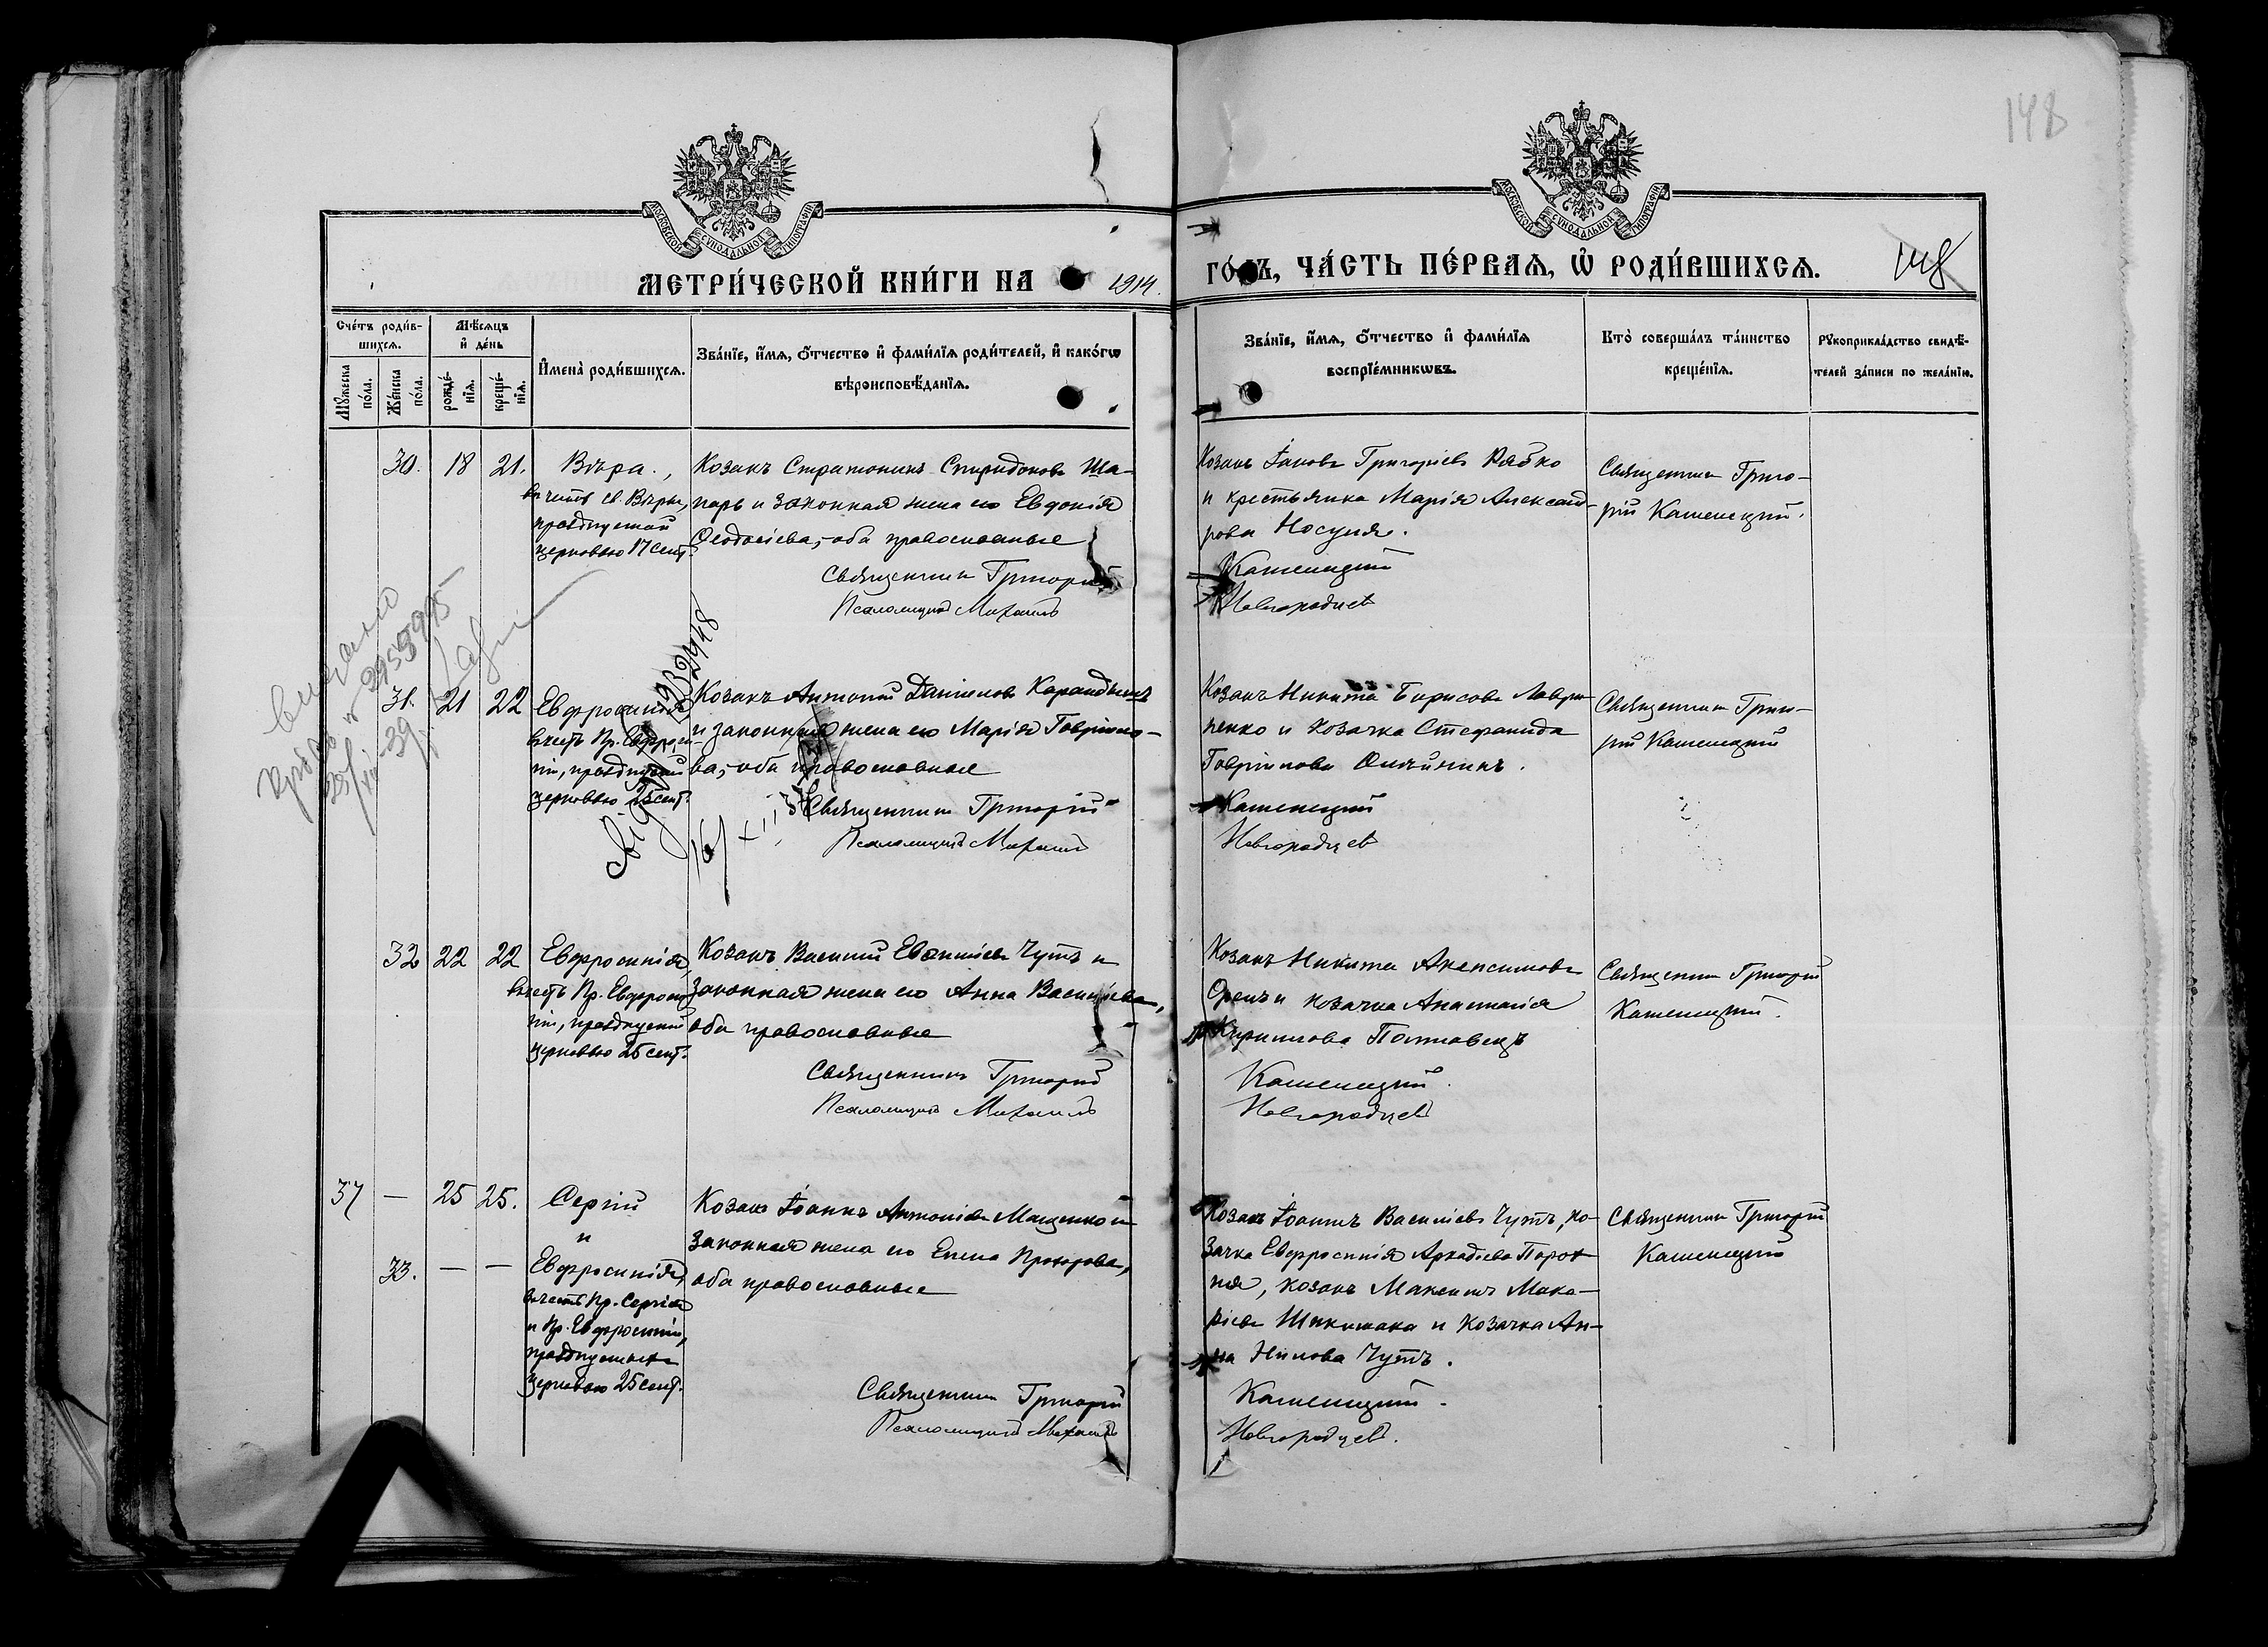 148
МОСКОВСКОЙ СѴНОДАЛЬНОЙ ТИПОГРАФІИ
МОСКОВСКОЙ СѴНОДАЛЬНОЙ ТИПОГРАФІИ
МЕТРИ́ЧЕСКОЙ КНИ́ГИ НА 1914.
ГО́ДЪ, ЧА́СТЬ ПЕ́РВАЯ, Ѡ҆ РОДИ́ВШИХСЯ.
148
Сче́тъ роди́в-
шихся.
Мѣ́сяцъ
и҆ де́нь
Мꙋ́жеска
по́ла.
Же́нска
по́ла.
рожде́-
нїя.
креще́-
нїя.
И҆мена̀ роди́вшихся.
Зва́нїе, и҆́мя, ѻ҆́тчество и҆ фами́лїя роди́телей, и҆ како́гѡ
вѣроисповѣ́данїя.
Зва́нїе, и҆́мя, ѻ҆́тчество и҆ фами́лїя
воспрїе́мникѡвъ.
Кто̀ соверша́лъ та́инство
креще́нїя.
Рꙋкоприкла́дство свидѣ́-
телей за́писи по жела́нїю.
30. 18 21.
Вѣра.,
въ честь св. Вѣры,
празднуемой
церковью 17 сент.
Козакъ Стратоникъ Спиридоновъ Ша-
паръ и законная жена его Евдокія
Ѳеодосіева, оба православные
Священникъ Григорій
Псаломщикъ Михаилъ
Козакъ Іаковъ Григоріевъ Рябко
и крестьянка Марія Александ-
рова Носуля.
Каменецкій
Новгородцев
Священникъ Григо-
рій Каменецкій.
31. 21 22
Евфросинія
въ честь Пр. Евфроси-
ніи, празднуемой
церковью 25 сент.
Козакъ Антоній Даніиловъ
и законная жена его Марія Гавріило-
ва, оба православные
Священникъ Григорій
Псаломщикъ Михаилъ
Козакъ Никита Борисовъ Лаври-
ненко и козачка Стефанида
Гавріилова Олійникъ.
Каменецкій
Новгородцев
Священникъ Григо-
рій Каменецкій
32 22 22
Евфросинія,
въ честь Пр. Евфроси-
ніи, празднуемой
церковью 25 сент.
Козакъ Василій Евфиміевъ Чутъ и
законная жена его Анна Васильева,
оба православные
Священникъ Григорій
Псаломщикъ Михаилъ
Козакъ Никита
и козачка Анастасія
Кириллова Полтавецъ
Каменецкій.
Новгородцев
Священникъ Григорій
Каменецкій.
37 — 25 25.
Сергій
и
33. — —
Евфросинія,
въ честь Пр. Сергія
и Пр. Евфросиніи,
празднуемыхъ
церковью 25 сент.
Козакъ Іоаннъ Антоніевъ Мащенко и
законная жена его Елена Прохорова,
оба православные
Священникъ Григорій
Псаломщикъ Михаилъ
Козакъ Іоаннъ Васильевъ Чутъ, ко-
зачка Евфросинія Аркадіева
козакъ Максимъ Мака-
ріевъ и козачка Ан-
на Нилова Чутъ.
Каменецкій.
Новгородцев.
Священникъ Григорій
Каменецкій